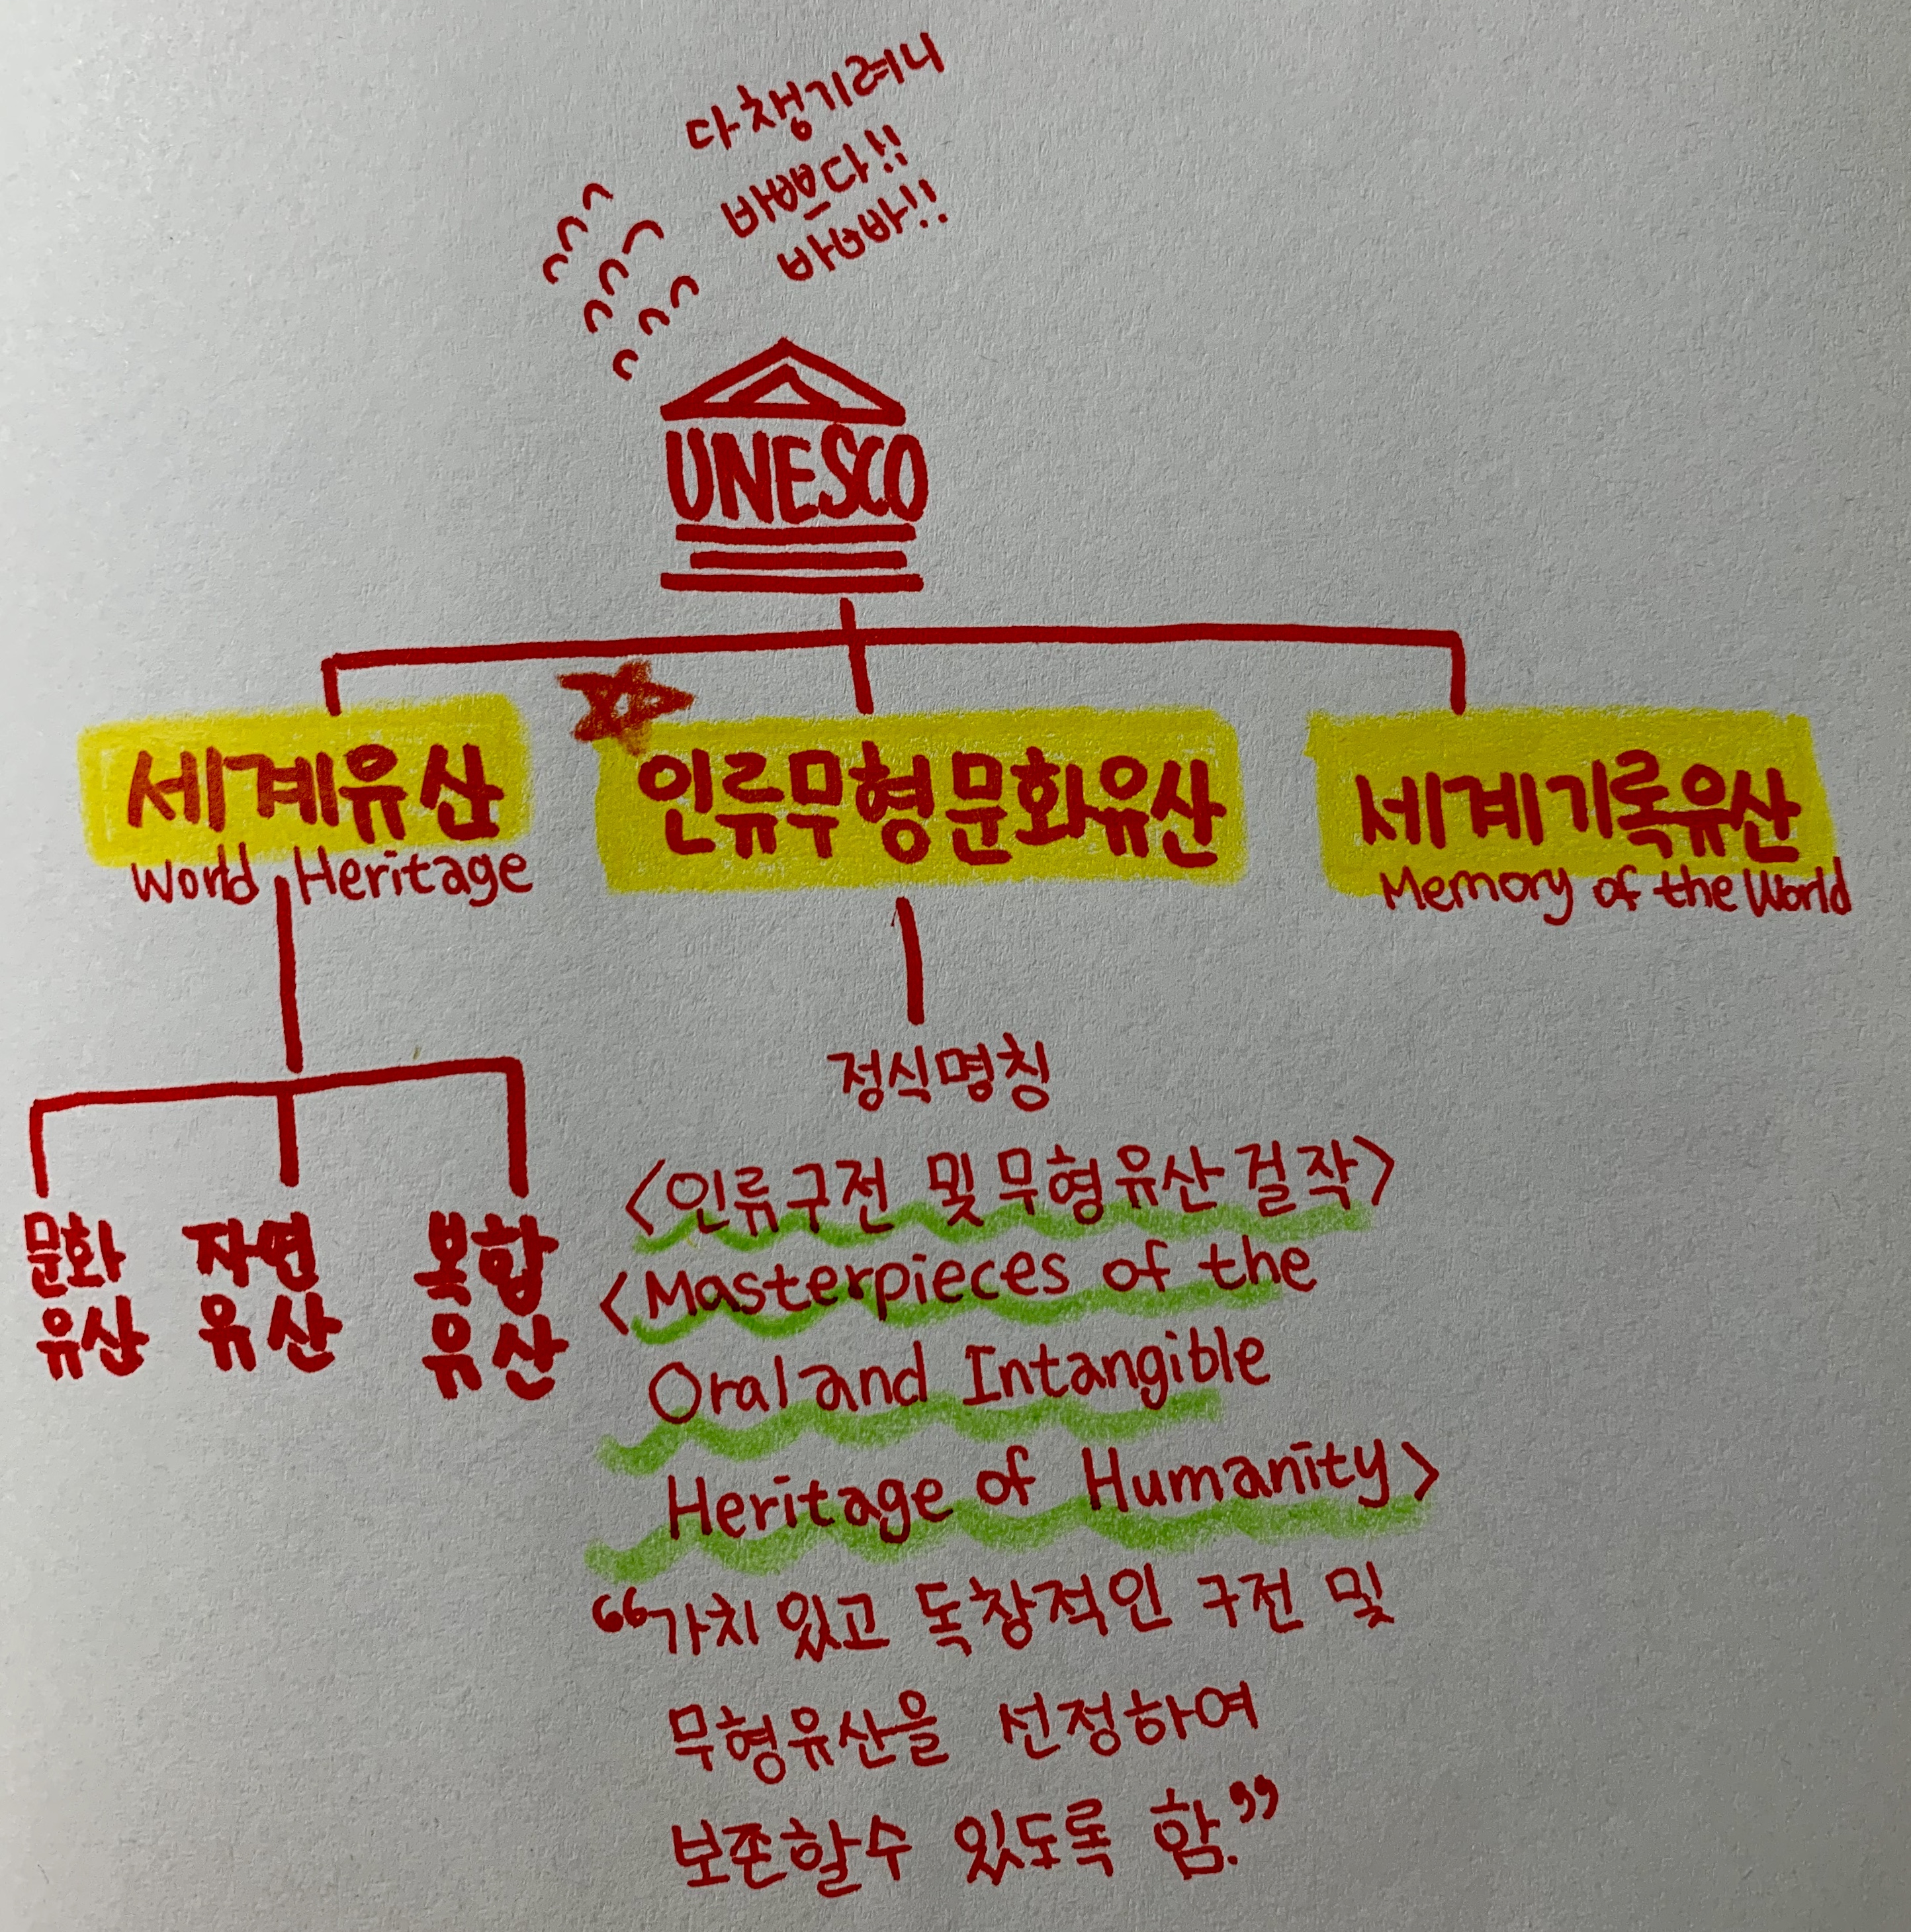 다챙기려니
바쁘다!!
바빠!!
UNESCO
세계유산
World Heritage
인류무형문화유산
세계기록유산
Memory of the World
문화
유산
자연
유산
복합
유산
정식명칭
<인류구전 및 무형유산 걸작>
<Masterpieces of the
Oral and Intangible
Heritage of Humanity>
“가치 있고 독창적인 구전 및
무형유산을 선정하여
보존할수 있도록 함.”